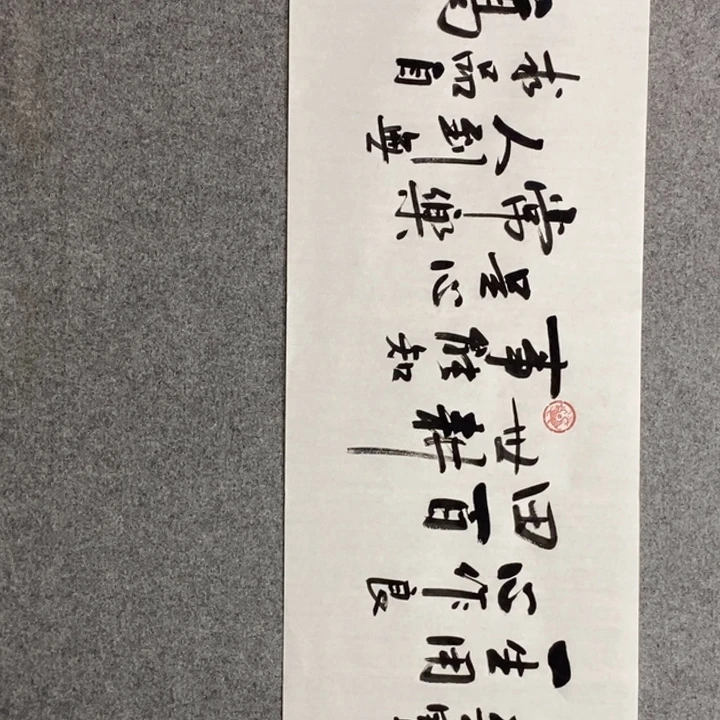 一生用
心作良
田百
世耕
事能知
足心
常樂
人到無
求品自
高